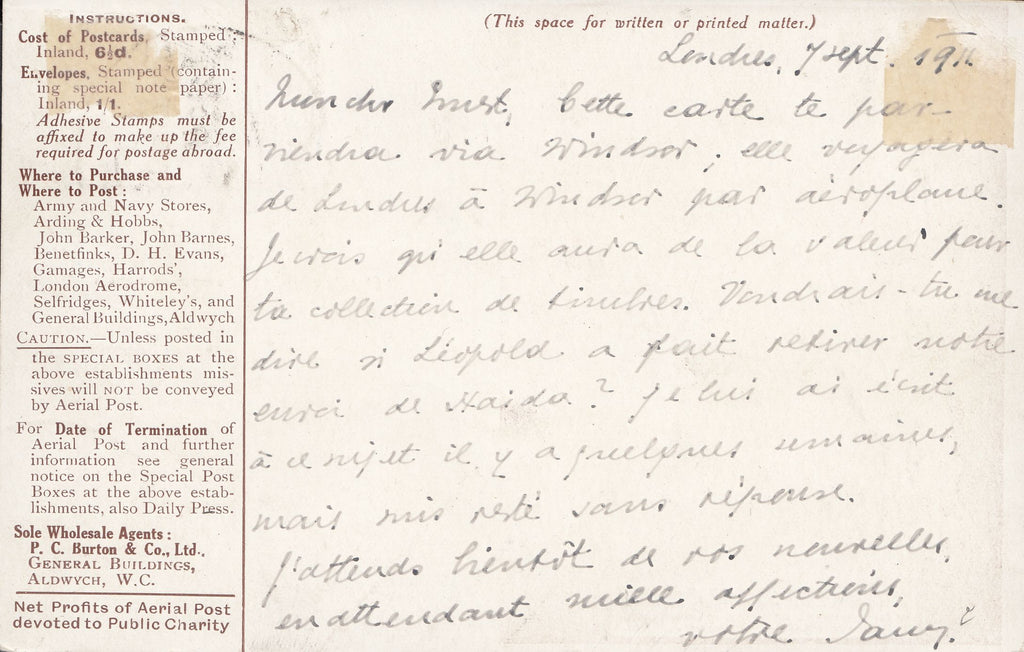 INSTRUCTIONS.
Cost of Postcards, Stamped:
Inland, 6½d.
Envelopes, Stamped (contain-
ing special note paper):
Inland, 1/1.
Adhesive Stamps must be
affixed to make up the fee
required for postage abroad.
Where to Purchase and
Where to Post:
Army and Navy Stores,
Arding & Hobbs,
John Barker, John Barnes,
Benetfinks, D. H. Evans,
Gamages, Harrods',
London Aerodrome,
Selfridges, Whiteley's, and
General Buildings, Aldwych
CAUTION.—Unless posted in
the SPECIAL BOXES at the
above establishments mis-
sives will NOT be conveyed
by Aerial Post.
For Date of Termination of
Aerial Post and further
information see general
notice on the Special Post
Boxes at the above estab-
lishments, also Daily Press.
Sole Wholesale Agents:
P. C. Burton & Co., Ltd.,
GENERAL BUILDINGS,
ALDWYCH, W.C.
Net Profits of Aerial Post
devoted to Public Charity
(This space for written or printed matter.)
Londres, 7 sept. 1911
Mon cher Ernest, Cette carte te par-
viendra via Windsor; elle voyagera
de Londres à Windsor par aéroplane.
Je crois qu'elle aura de la valeur pour
ta collection de timbres. Voudrais-tu me
dire si Léopold a fait retirer notre
envoi de ? Je lui ai écrit
à ce sujet il y a quelques semaines,
mais suis resté sans réponse.
J'attends bientôt de vos nouvelles,
en attendant mille affections,
votre